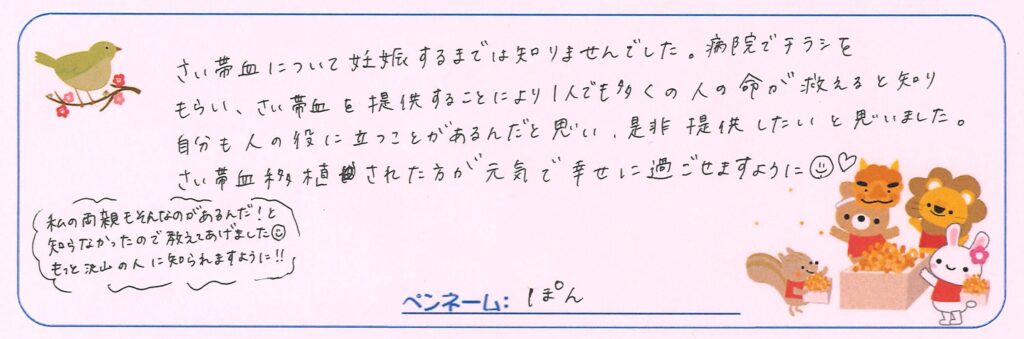 さい帯血について妊娠するまでは知りませんでした。病院でチラシを
もらい、さい帯血を提供することにより1人でも多くの人の命が救えると知り
自分も人の役に立つことがあるんだと思い、是非提供したいと思いました。
さい帯血移植された方が元気で幸せに過ごせますように☺♡
私の両親もそんなのがあるんだ!と
知らなかったので教えてあげました☺
もっと沢山の人に知られますように!!
ペンネーム: しぽん